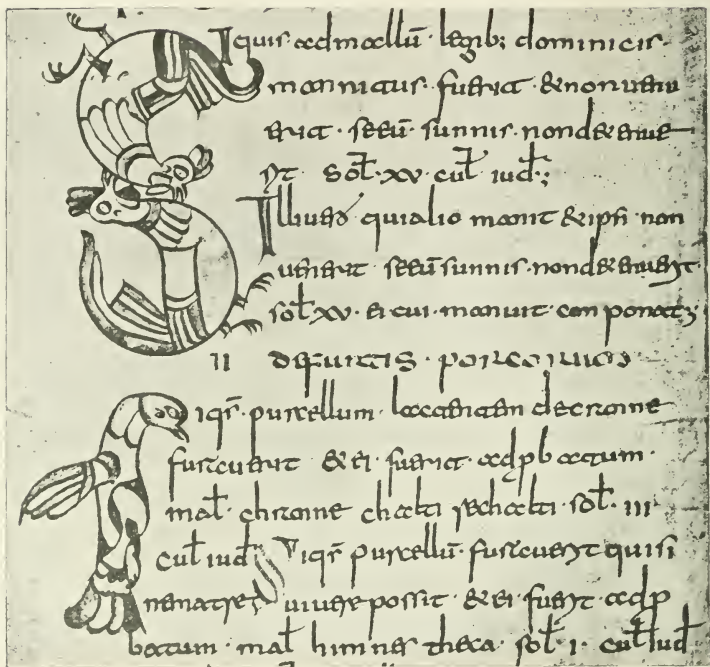 Siquis admallū· legib; dominicis·
mannitus· fuerit· &nonuen
erit· seeū· sunnis· nond&enue
rit sol̄· xv· cul̄ iud̄·;
Illiuero quialio manit &ipsi non
uenerit seeū sunnis· nond&enuerit
sol̄ xv· ei cui· manuit· conponat;
II DEFURTIS· PORCORUM
Siqs̄· purcellum· lactantem decranne
furauerit &ei· fuerit· adp̱batum·
mal̄· chranne chalti rechalti· sol̄· III
cul̄ iud̄ Siqs̄ purcellū· furauerit quisi
nematre uiuere possit· &ei· fuerit adp̱
batum· mal̄ himnes theca· sol̄· I· cul̄ iud̄